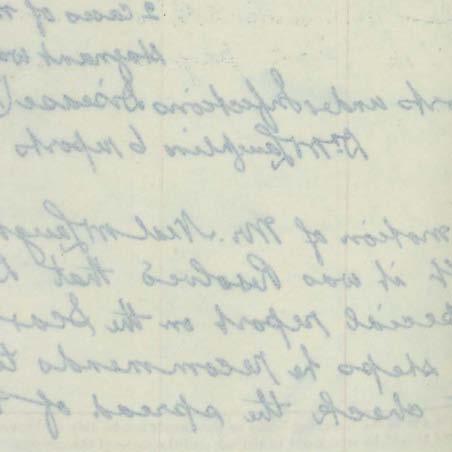 2 Cases of
stagnant
orts under Infectious Disease (
Dr. McLaughlin 6 reports
motion of Mr. Neal McLaugh
it was Resolved that
pecial report on the Scar
steps to recommend t
check the spread of